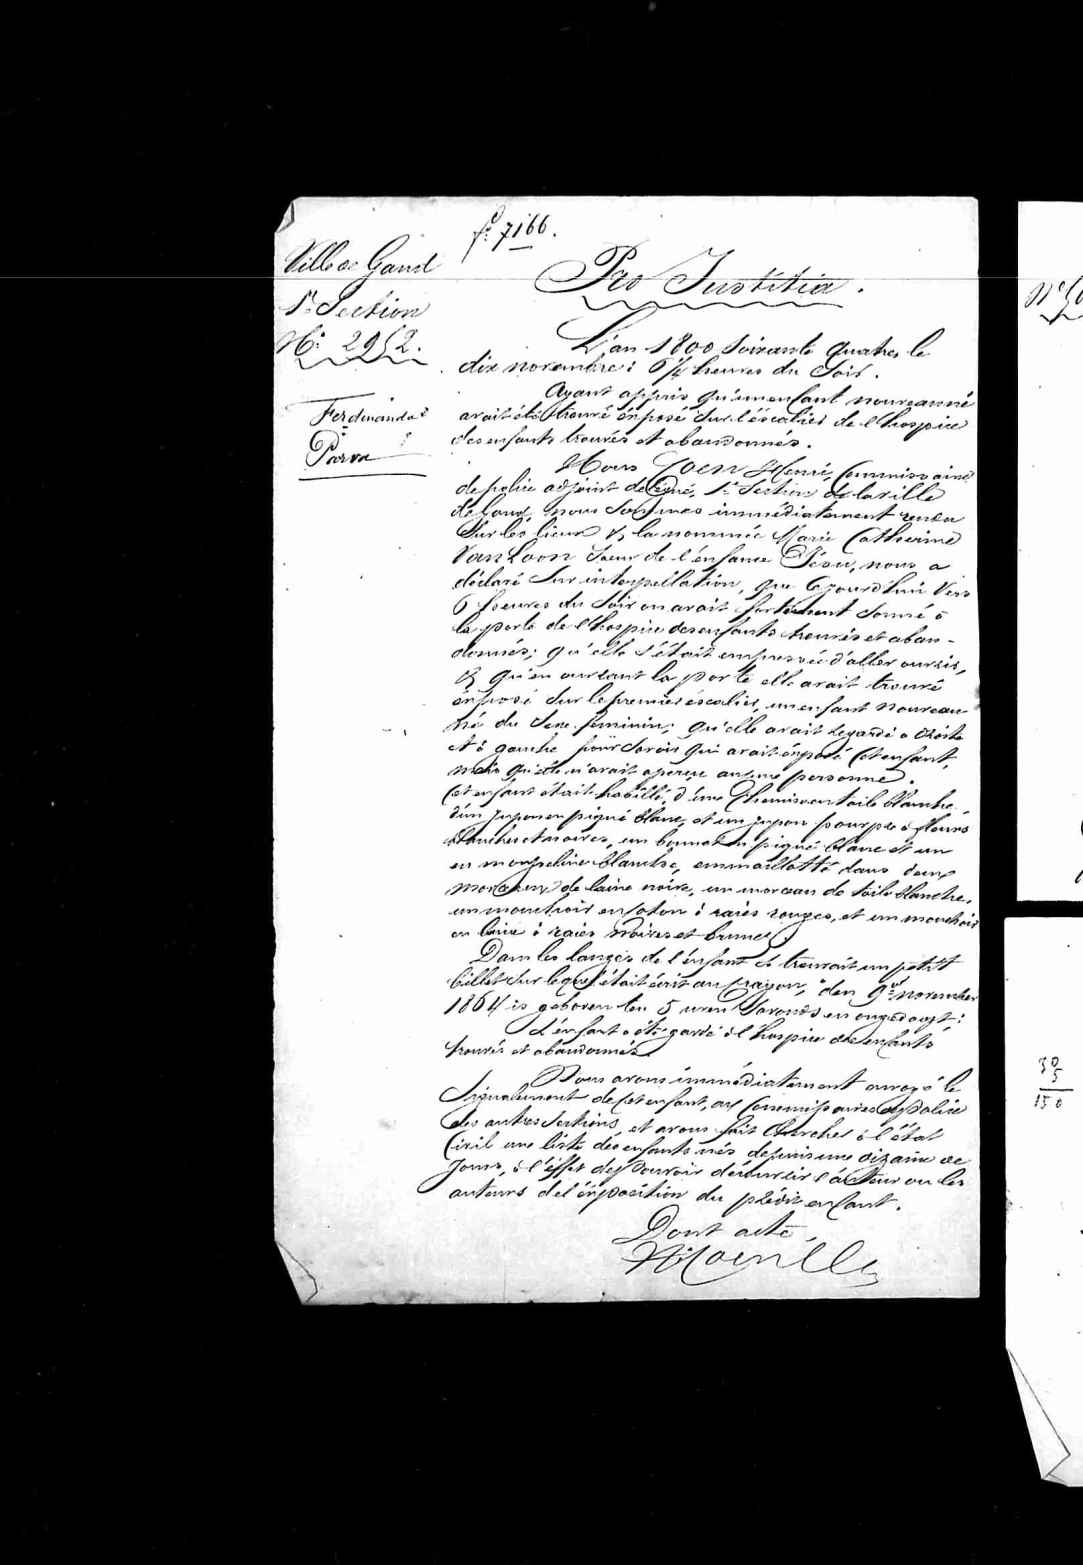 fo. 7166.
Ville de Gand
1re Section
No. 2952.
Ferdinanda
Parva
Pro Justitia.
L'an 1800 soixante quatre, le
dix novembre à 6 1/2 heures du Soir.
Ayant appris qu'un enfant nouveau né
avait été trouvé éxposé sur l'éscalier de l'hospice
des enfants trouvés et abandonnés.
Nous Coen Henri, Commissaire
de police adjoint delégué, 1re Section de la ville
de Gand nous sommes immédiatement rendu
sur les lieux & la nommée Marie Catherine
Van Loon Soeur de l'enfance Jésu, nous a
déclaré sur interpellation, que cejourd'hui vers
6 heures du Soir on avait fortement sonné à
la porte de l'hospice des enfants trouvés et aban-
donnés; qu'elle s'était empressée d'aller ouvrir,
& qu'en ouvrant la porte elle avait trouvé
éxposé sur le premier éscalier, un enfant nouveau
né du sexe féminin; qu'elle avait regardé à droite
et à gauche pour savoir qui avait éxposé cet enfant,
mais qu'elle n'avait aperçu aucune personne.
Cet enfant était habillé, d'une chemise en toile blanche,
d'un jupon en piqué blanc, et un jupon pourpre à fleurs
blanches et noires, un bonnet en piqué blanc et un
en mousseline blanche, emmaillotté dans deux
morceaux de laine noire, un morceau de toile blanche,
un mouchoir en coton à raies rouges, et un mouchoir
en laine à raies noires et brunes.
Dans les langes de l'enfant se trouvait un petit
billet sur lequel était écrit au crayon, "den 9er november
1864 is geboren ten 5 uren savonds en ongedoopt:
L'enfant a été gardé à l'hospice des enfants
trouvés et abandonnés.
Nous avons immédiatement envoyé le
Signalement de cet enfant, aux Commissaires de police
des autres Sections, et avons fait chercher à l'état
Civil une liste des enfants nés depuis une dizaine de
jours, à l'éffet de pouvoir découvrir l'auteur ou les
auteurs de l'éxposition du prédit enfant.
Dont acte,
30
5
150